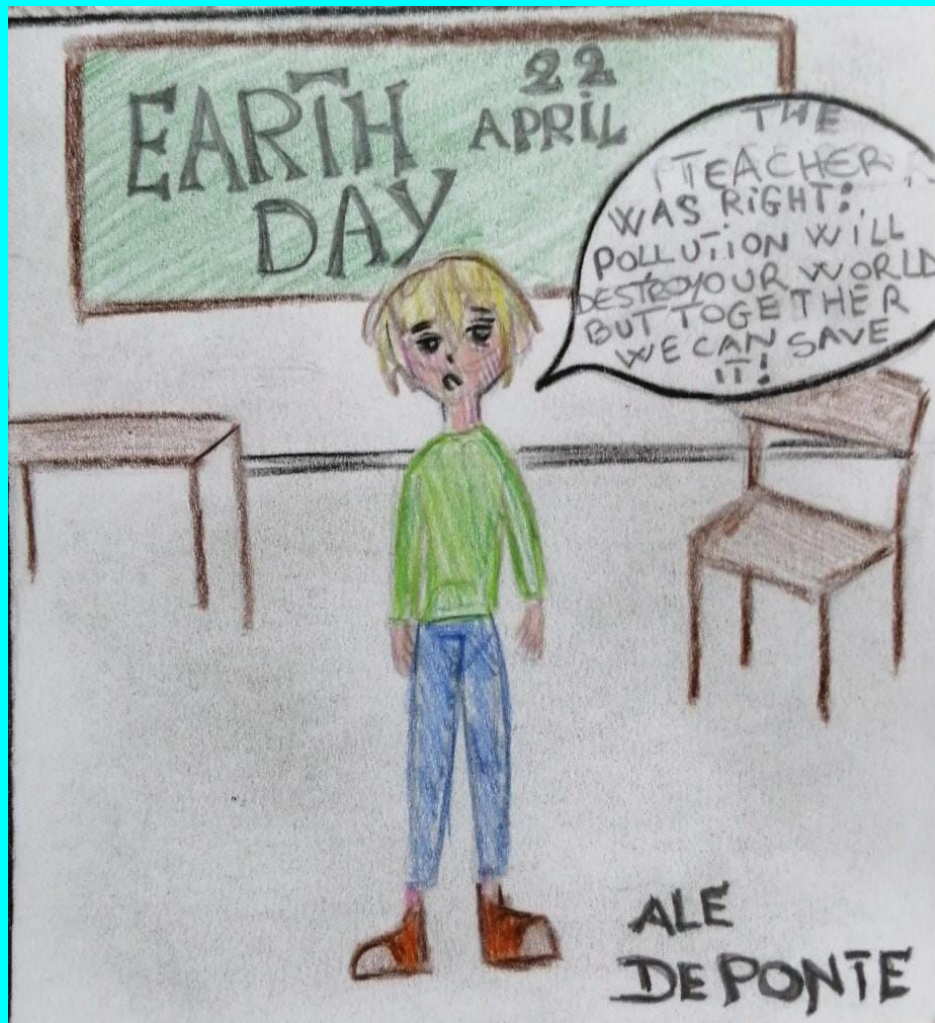 EARTH
DAY
22
APRIL
THE
TEACHER
WAS RIGHT:
POLLUTION WILL
DESTROY OUR WORLD
BUT TOGETHER
WE CAN SAVE
IT!
ALE
DE PONTE